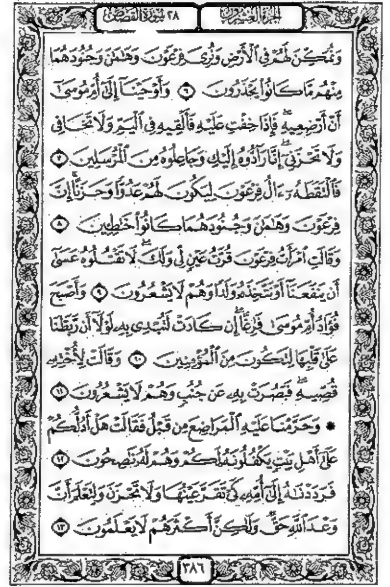 الجزء العشرون ٢٨ سورة القصص
وَنُمَكِّنَ لَهُمْ فِي ٱلْأَرْضِ وَنُرِىَ فِرْعَوْنَ وَهَٰمَٰنَ وَجُنُودَهُمَا
مِنْهُم مَّا كَانُوا۟ يَحْذَرُونَ ٦ وَأَوْحَيْنَآ إِلَىٰٓ أُمِّ مُوسَىٰٓ
أَنْ أَرْضِعِيهِ ۖ فَإِذَا خِفْتِ عَلَيْهِ فَأَلْقِيهِ فِي ٱلْيَمِّ وَلَا تَخَافِي
وَلَا تَحْزَنِىٓ ۖ إِنَّا رَآدُّوهُ إِلَيْكِ وَجَاعِلُوهُ مِنَ ٱلْمُرْسَلِينَ ٧
فَٱلْتَقَطَهُۥٓ ءَالُ فِرْعَوْنَ لِيَكُونَ لَهُمْ عَدُوًّا وَحَزَنًا ۗ إِنَّ
فِرْعَوْنَ وَهَٰمَٰنَ وَجُنُودَهُمَا كَانُوا۟ خَٰطِـِٔينَ ٨
وَقَالَتِ ٱمْرَأَتُ فِرْعَوْنَ قُرَّتُ عَيْنٍ لِّي وَلَكَ ۖ لَا تَقْتُلُوهُ عَسَىٰٓ
أَن يَنفَعَنَآ أَوْ نَتَّخِذَهُۥ وَلَدًا وَهُمْ لَا يَشْعُرُونَ ٩ وَأَصْبَحَ
فُؤَادُ أُمِّ مُوسَىٰ فَٰرِغًا ۖ إِن كَادَتْ لَتُبْدِي بِهِۦ لَوْلَآ أَن رَّبَطْنَا
عَلَىٰ قَلْبِهَا لِتَكُونَ مِنَ ٱلْمُؤْمِنِينَ ١٠ وَقَالَتْ لِأُخْتِهِۦ
قُصِّيهِ ۖ فَبَصُرَتْ بِهِۦ عَن جُنُبٍ وَهُمْ لَا يَشْعُرُونَ ١١
* وَحَرَّمْنَا عَلَيْهِ ٱلْمَرَاضِعَ مِن قَبْلُ فَقَالَتْ هَلْ أَدُلُّكُمْ
عَلَىٰٓ أَهْلِ بَيْتٍ يَكْفُلُونَهُۥ لَكُمْ وَهُمْ لَهُۥ نَٰصِحُونَ ١٢
فَرَدَدْنَٰهُ إِلَىٰٓ أُمِّهِۦ كَيْ تَقَرَّ عَيْنُهَا وَلَا تَحْزَنَ وَلِتَعْلَمَ أَنَّ
وَعْدَ ٱللَّهِ حَقٌّ وَلَٰكِنَّ أَكْثَرَهُمْ لَا يَعْلَمُونَ ١٣
٣٨٦